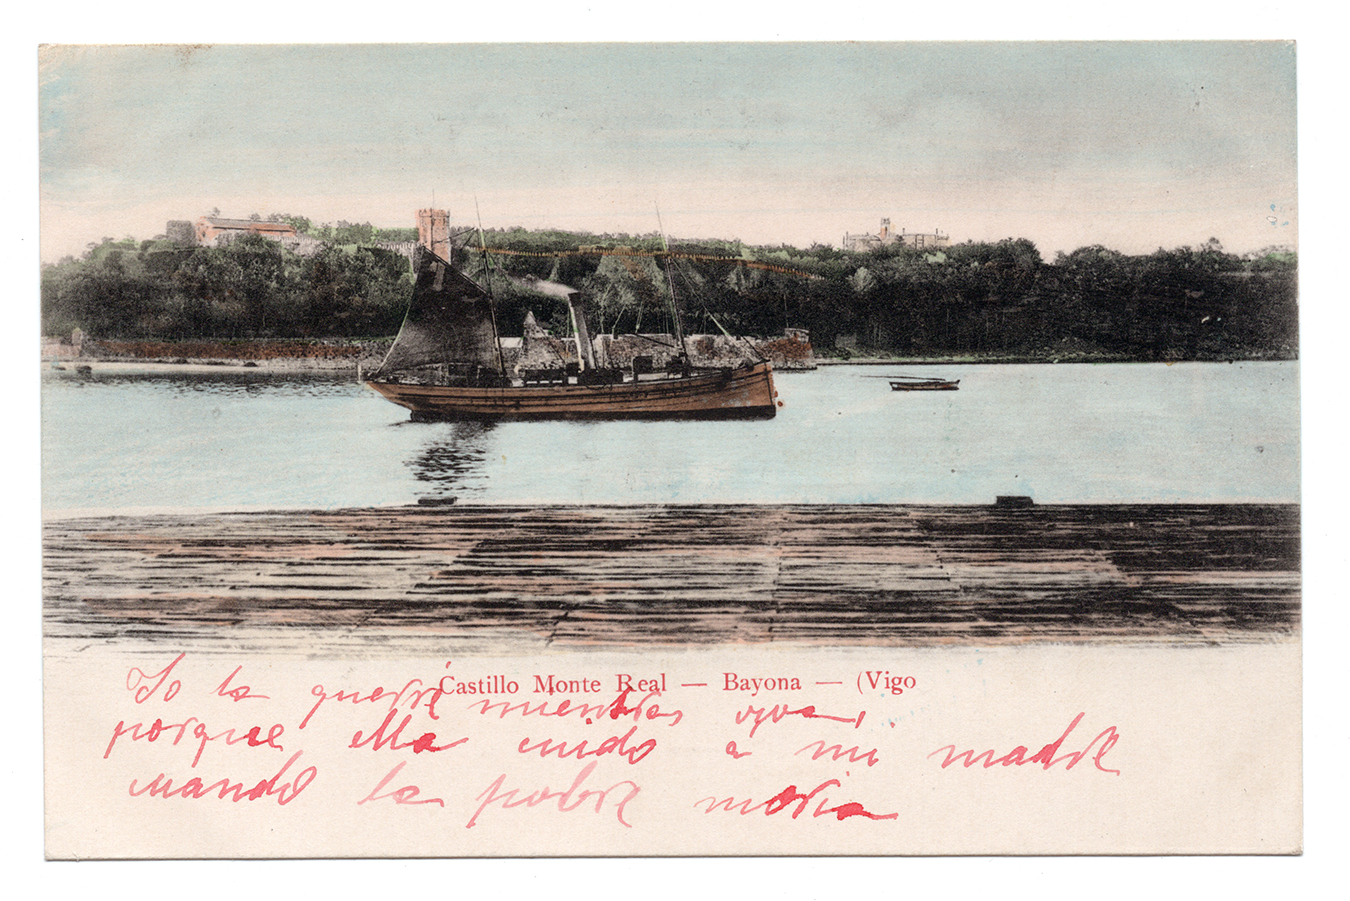 Castillo Monte Real — Bayona — (Vigo
Yo la querré mientras viva,
porque ella cuido a mi madre
cuando la pobre moria